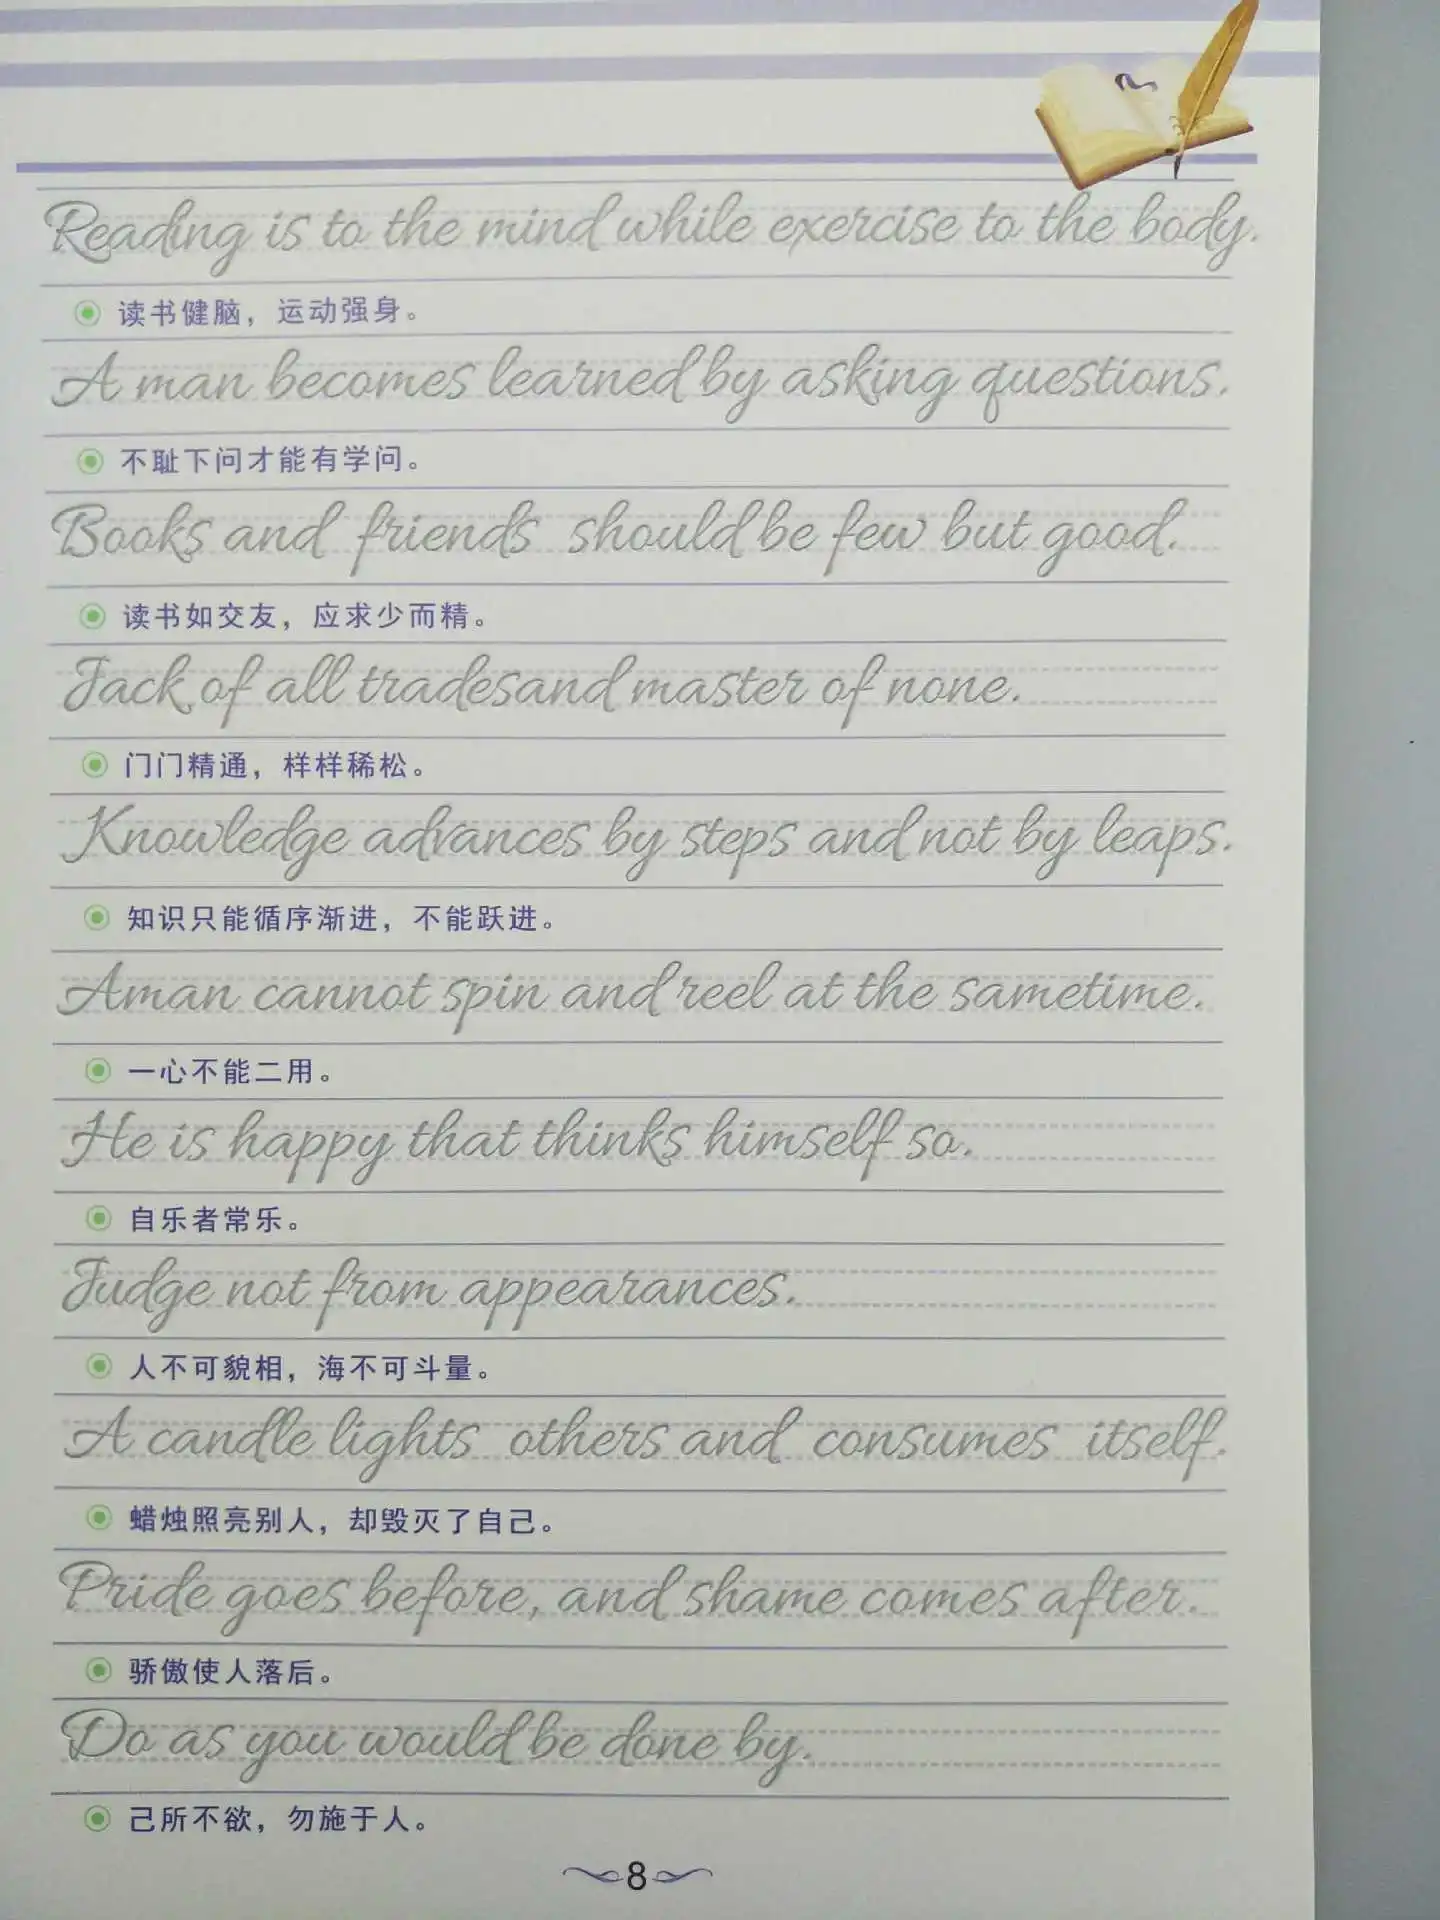 Reading is to the mind while exercise to the body.
读书健脑，运动强身。
A man becomes learned by asking questions.
不耻下问才能有学问。
Books and friends should be few but good.
读书如交友，应求少而精。
Jack of all tradesand master of none.
门门精通，样样稀松。
Knowledge advances by steps and not by leaps.
知识只能循序渐进，不能跃进。
Aman cannot spin and reel at the sametime.
一心不能二用。
He is happy that thinks himself so.
自乐者常乐。
Judge not from appearances.
人不可貌相，海不可斗量。
A candle lights others and consumes itself.
蜡烛照亮别人，却毁灭了自己。
Pride goes before, and shame comes after.
骄傲使人落后。
Do as you would be done by.
己所不欲，勿施于人。
8